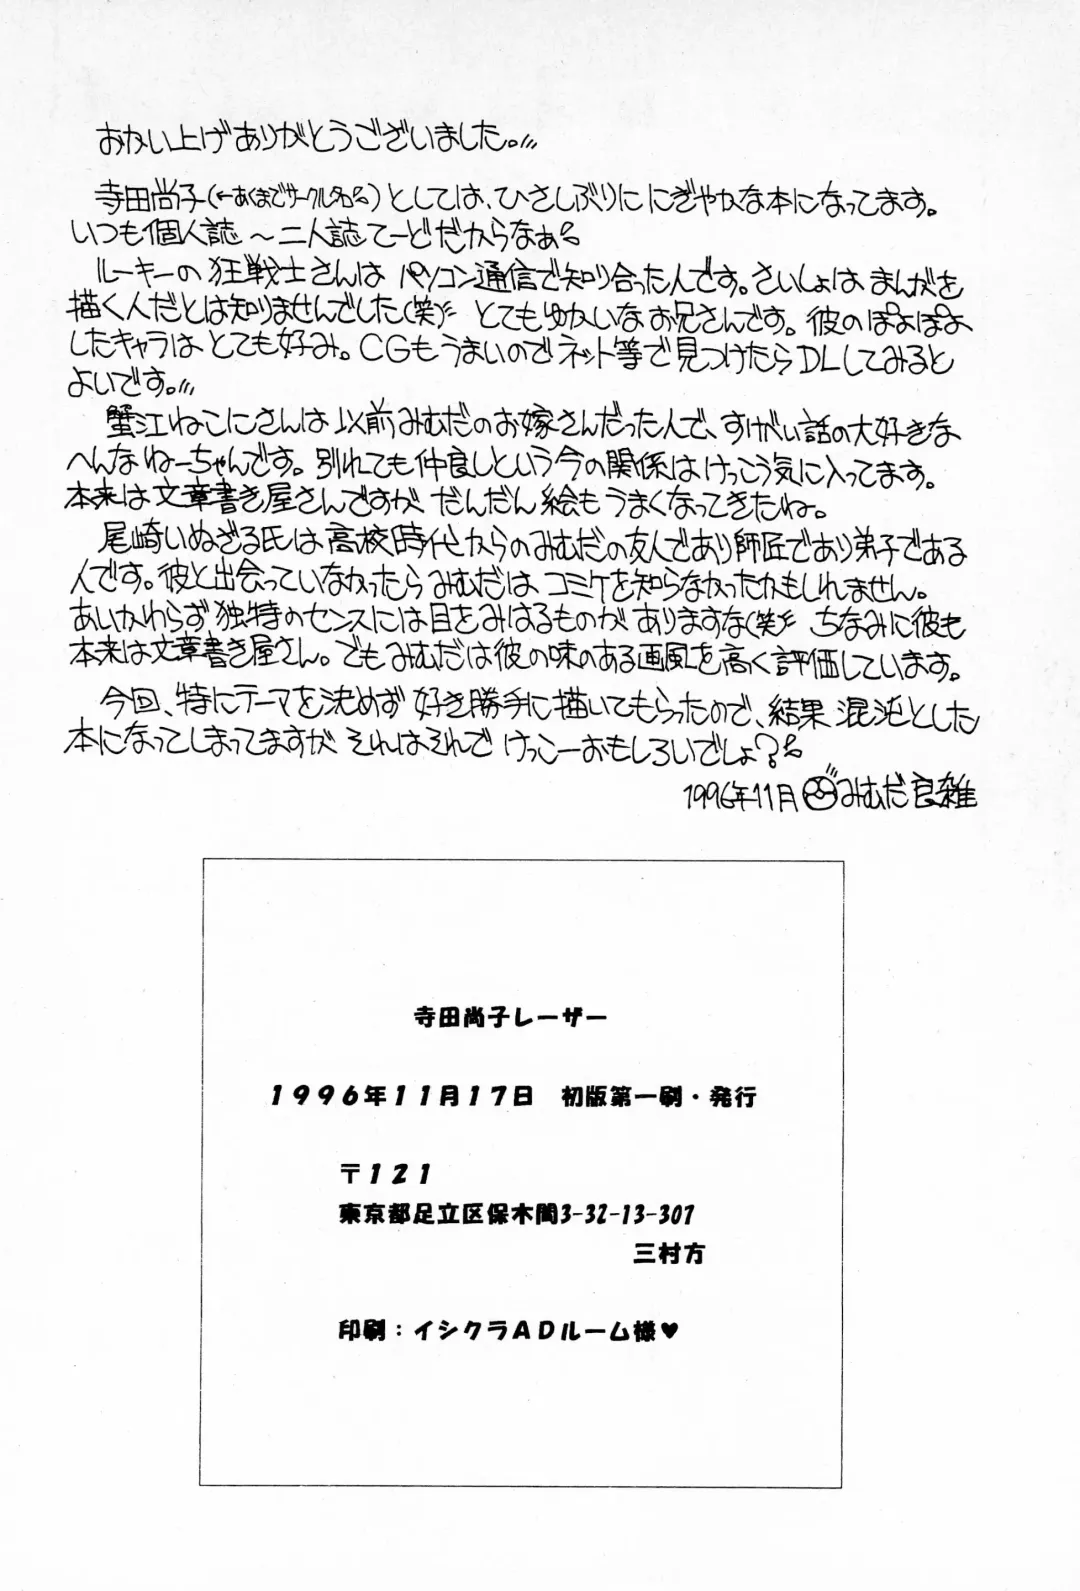 おかい上げありがとうございました。
寺田尚子(←あくまでサークル名)としては、ひさしぶりににぎやかな本になってます。
いつも個人誌～二人誌てーどだからなぁ
ルーキーの狂戦士さんは パソコン通信で知り合った人です。さいしょは まんがを
描く人だとは知りませんでした(笑) とてもゆかいなお兄さんです。彼のぽよぽよ
したキャラは とても好み。CGもうまいのでネット等で見つけたらDLしてみると
よいです。
蟹江ねこにさんは以前みむだのお嫁さんだった人で、すけべい話の大好きな
へんなねーちゃんです。別れても仲良しという今の関係はけっこう気に入ってます。
本来は文章書き屋さんですが だんだん絵もうまくなってきたね。
尾崎いぬざる氏は高校時代からのみむだの友人であり師匠であり弟子である
人です。彼と出会っていなかったらみむだは コミケを知らなかったかもしれません。
あいかわらず独特のセンスには目をみはるものが ありますな(笑) ちなみに彼も
本来は文章書き屋さん。でもみむだは彼の味のある画風を高く評価しています。
今回、特にテーマを決めず 好き勝手に描いてもらったので、結果 混沌とした
本になってしまってますが それはそれで けっこーおもしろいでしょ?
1996年11月 みむだ良雑
寺田尚子レーザー
1996年11月17日 初版第一刷・発行
〒121
東京都足立区保木間3-32-13-307
三村方
印刷：イシクラADルーム様♥